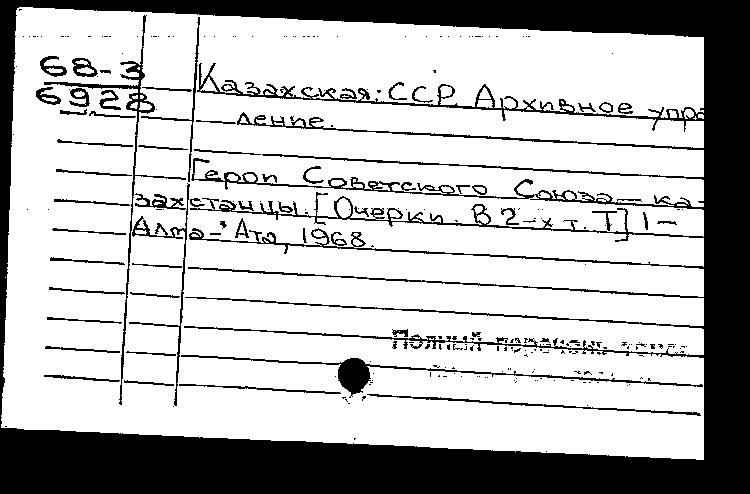 68-3
6928
Казахская ССР Архивное упра
ление.
Герои Советского Союза — ка-
захстанцы. [Очерки. В 2-х т. Т] 1 —
Алма-Ата, 1968.
Полный перечень